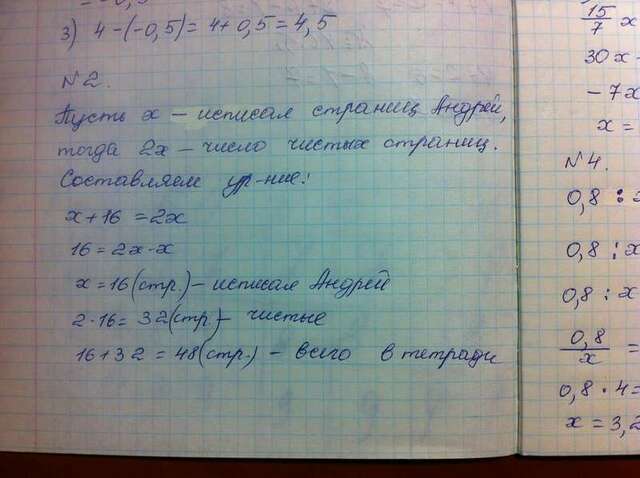 3) 4-(-0,5)= 4+0,5=4,5
N2.
Пусть x – исписал страниц Андрей,
тогда 2x – число чистых страниц.
Составляем ур-ние:
x+16 =2x
16=2x-x
x=16(стр.)– исписал Андрей
2·16= 32(стр)– чистые
16+32 =48(стр.) – всего в тетради
15/7 x
30x-
-7x
x=
N4.
0,8 :
0,8 : x
0,8 : x
0,8/x =
0,8·4=
x=3,2